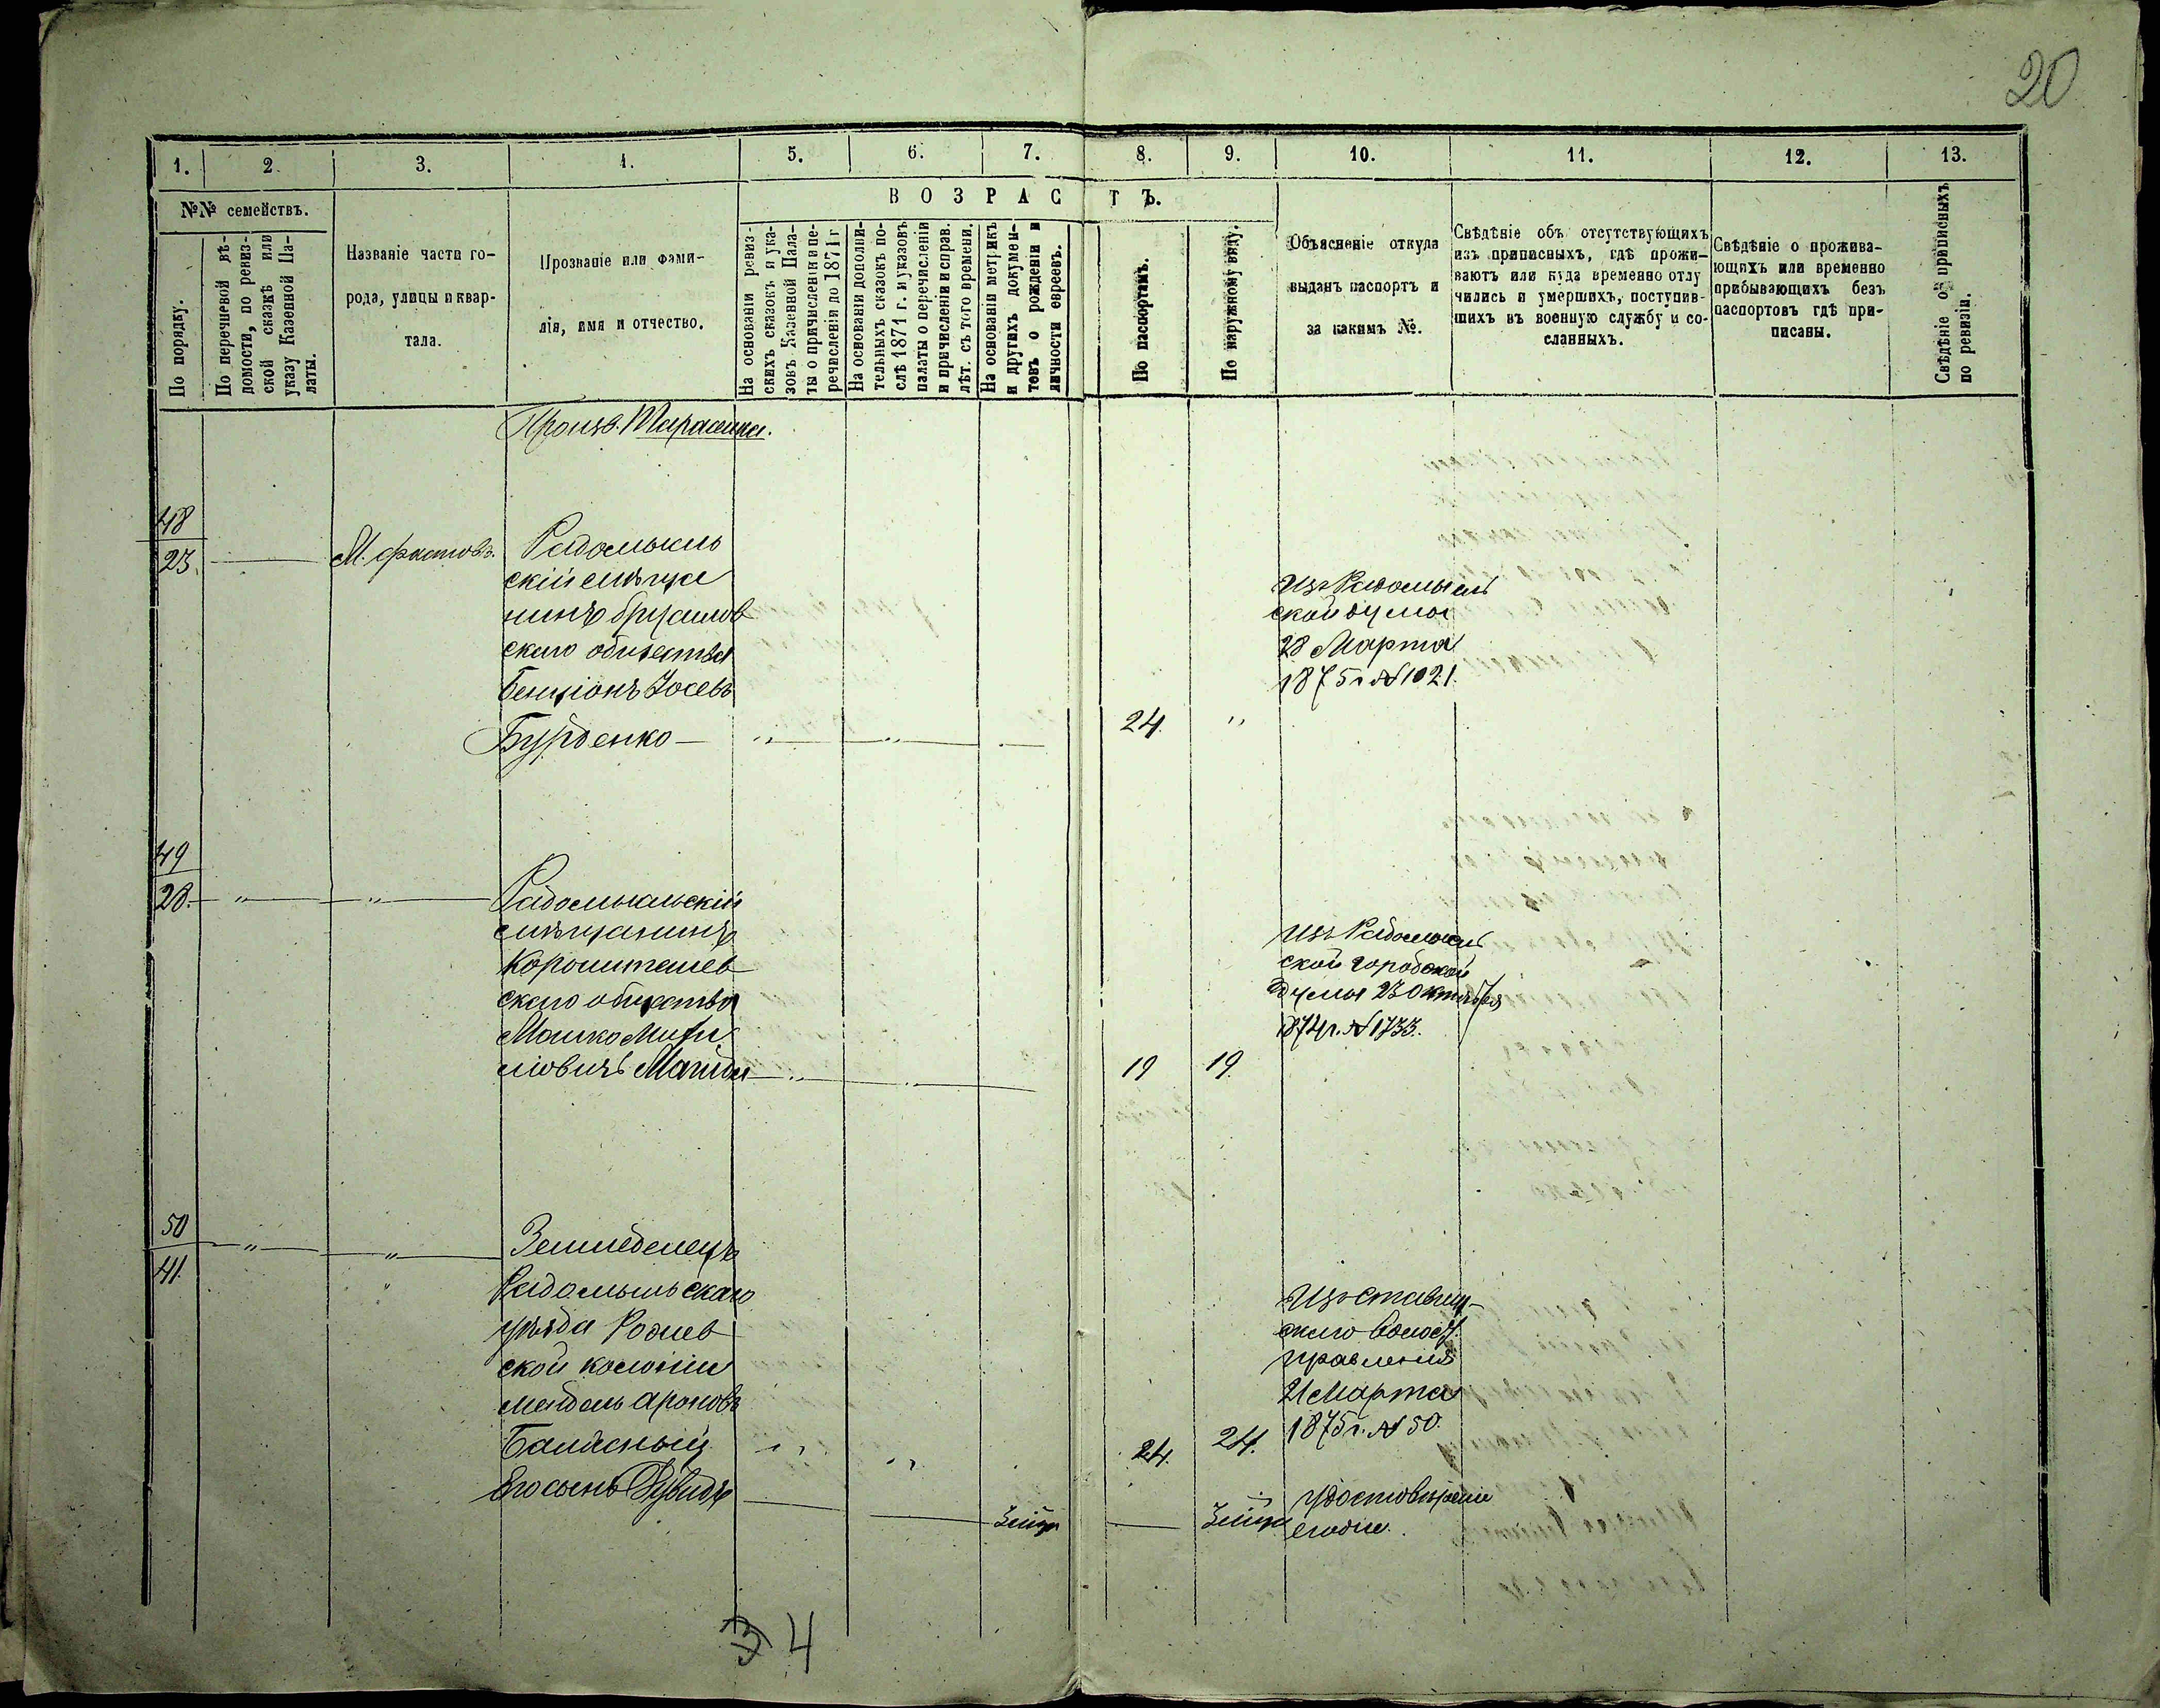 20
1. 2. 3. 4. 5. 6. 7. 8. 9. 10. 11. 12. 13.
№№ семействъ.
ВОЗРАСТЪ.
По порядку.
По перечневой вѣ-
домости, по ревиз-
ской сказкѣ или
указу Казенной Па-
латы.
Названіе части го-
рода, улицы и квар-
тала.
Прозваніе или фами-
лія, имя и отчество.
На основаніи ревиз-
скихъ сказокъ и ука-
зовъ Казенной Пала-
ты о причисленіи и пе-
речисленіи до 1871 г
На основаніи дополни-
тельныхъ сказокъ по-
слѣ 1871 г. и указовъ
палаты о перечисленіи
и причисленіи и справ.
лѣт. съ того времени.
На основаніи метрикъ
и другихъ докумен-
товъ о рожденіи и
личности евреевъ.
По паспортамъ.
По наружному виду.
Объясненіе откуда
выданъ паспортъ и
за какимъ №.
Свѣдѣніе объ отсутствующихъ
изъ приписныхъ, гдѣ прожи-
ваютъ или куда временно отлу
чились и умершихъ, поступив-
шихъ въ военную службу и со-
сланныхъ.
Свѣдѣніе о прожива-
ющихъ или временно
прибывающихъ безъ
паспортовъ гдѣ при-
писаны.
Свѣдѣніе о приписныхъ
по ревизіи.
48
23.
М. Фастовъ.
Радомысль
скій мѣща
нинъ Брусилов
скаго общества
Бенціонъ Іосевъ
Бурденко
24.
Изъ Радомысль
ской думы
28 Марта
1875 г. № 1021.
49
28.
Радомысльскій
мѣщанинъ
Коростышев
скаго общества
Мошко
19 19.
Изъ Радомысль
ской городской
думы 23 Октября
1874 г. № 1733.
50
41.
Земледелецъ
Радомысльскаго
уѣзда
ской колоніи
Мендель Ароновъ
Балясный
24. 24.
Изъ Ставищ-
скаго Волост.
правленія
Марта
1875 г. № 50.
Его сынъ
удостовѣреніе
3 4